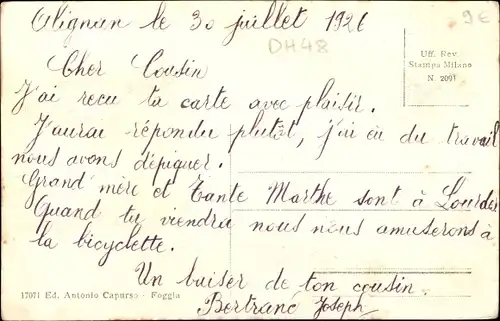 Alignan le 30 juillet 1926
9€
DH48
Uff. Rev.
Stampa Milano
N. 2091
Cher Cousin
J'ai recu ta carte avec plaisir.
J'aurai répondu plutôt, j'ai eu du travail
nous avons dépiquer.
Grand' mère et Tante Marthe sont à Lourdes
Quand tu viendra nous nous amuserons à
la bicyclette.
Un baiser de ton cousin.
Bertrand Joseph
17071 Ed. Antonio Capurso - Foggia